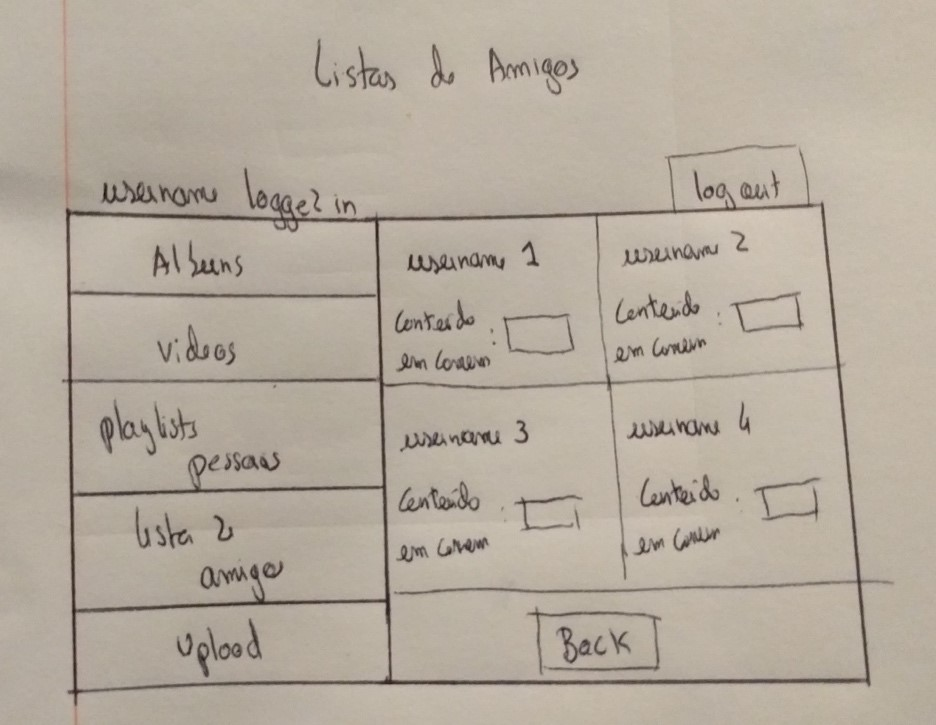 Listas de Amigos
username logged in
log out
Albuns
videos
playlists
pessoais
lista de
amigos
Upload
username 1
Conteúdo :
em comum
username 2
Conteúdo :
em comum
username 3
Conteúdo :
em comum
username 4
Conteúdo :
em comum
Back